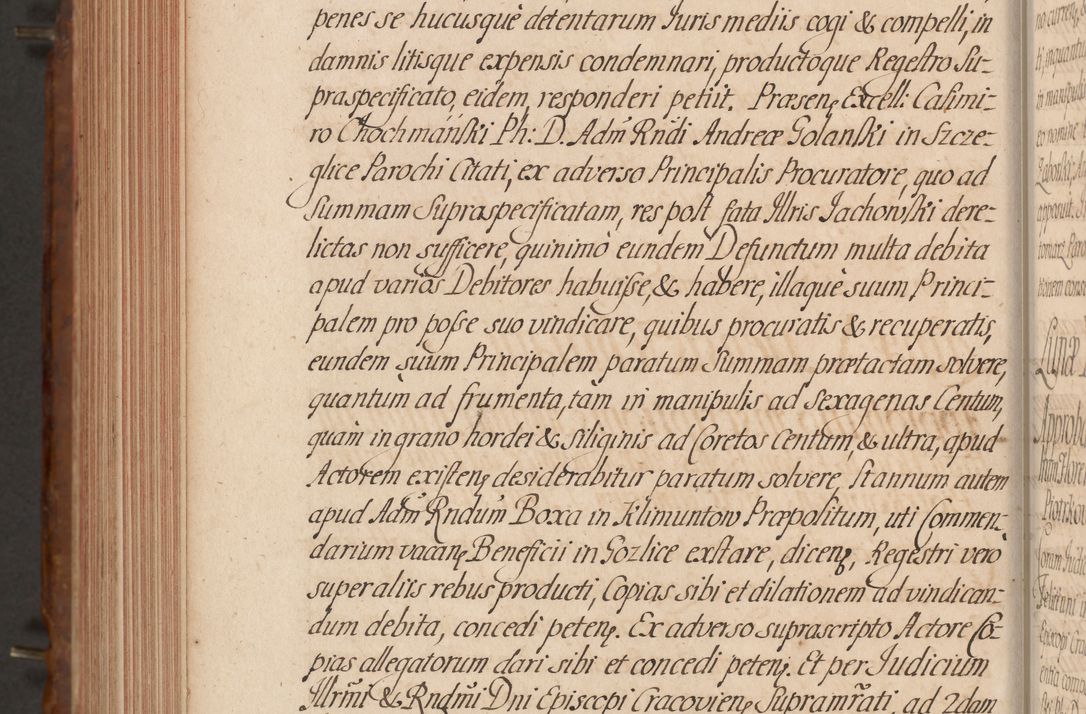 penes se hucusquè detentarum Iuris mediis cogi & compelli, in
damnis litisque expensis condemnari, productoque Regestro Su-
praspecificato, eidem responderi petiit. Præsenȩ Excell: Casimi-
ro Chochmański Ph: D. Adm̃ Rñdi Andreæ Golanski in Szcze-
glice Parochi Citati, ex adverso Principalis Procuratore, quo ad
Summam Supraspecificatam, res post fata Illris Jachowski dere-
lictas non sufficere, quinimò eundem Defunctum multa debita
apud varios Debitores habuisse, & habere, illaquè suum Princi-
palem pro posse suo vindicare, quibus procuratis & recuperatis,
eundem suum Principalem paratum Summam prætactam solvere,
quantùm ad frumenta, tàm in manipulis ad Sexagenas Centum,
quàm in grano hordei & siliginis ad Coretos Centum, & ultra, apud
Actorem existenȩ desiderabitur paratum solvere, Stannum autem
apud Adm̃ Rndum Boxa in Klimuntow Præpositum, uti Commen-
darium vacanȩ Beneficii in Gozlice exstare, dicenȩ, Regestri verò
super aliis rebus producti, Copias sibi et dilationem ad vindican-
dum debita, concedi petenȩ. Ex adverso suprascripto Actore Co-
pias allegatorum dari sibi et concedi petenȩ. Et per Judicium
Illrm̃i & Rndm̃i Dni Episcopi Cracovienȩ Supramr̃ati, ad 2dam